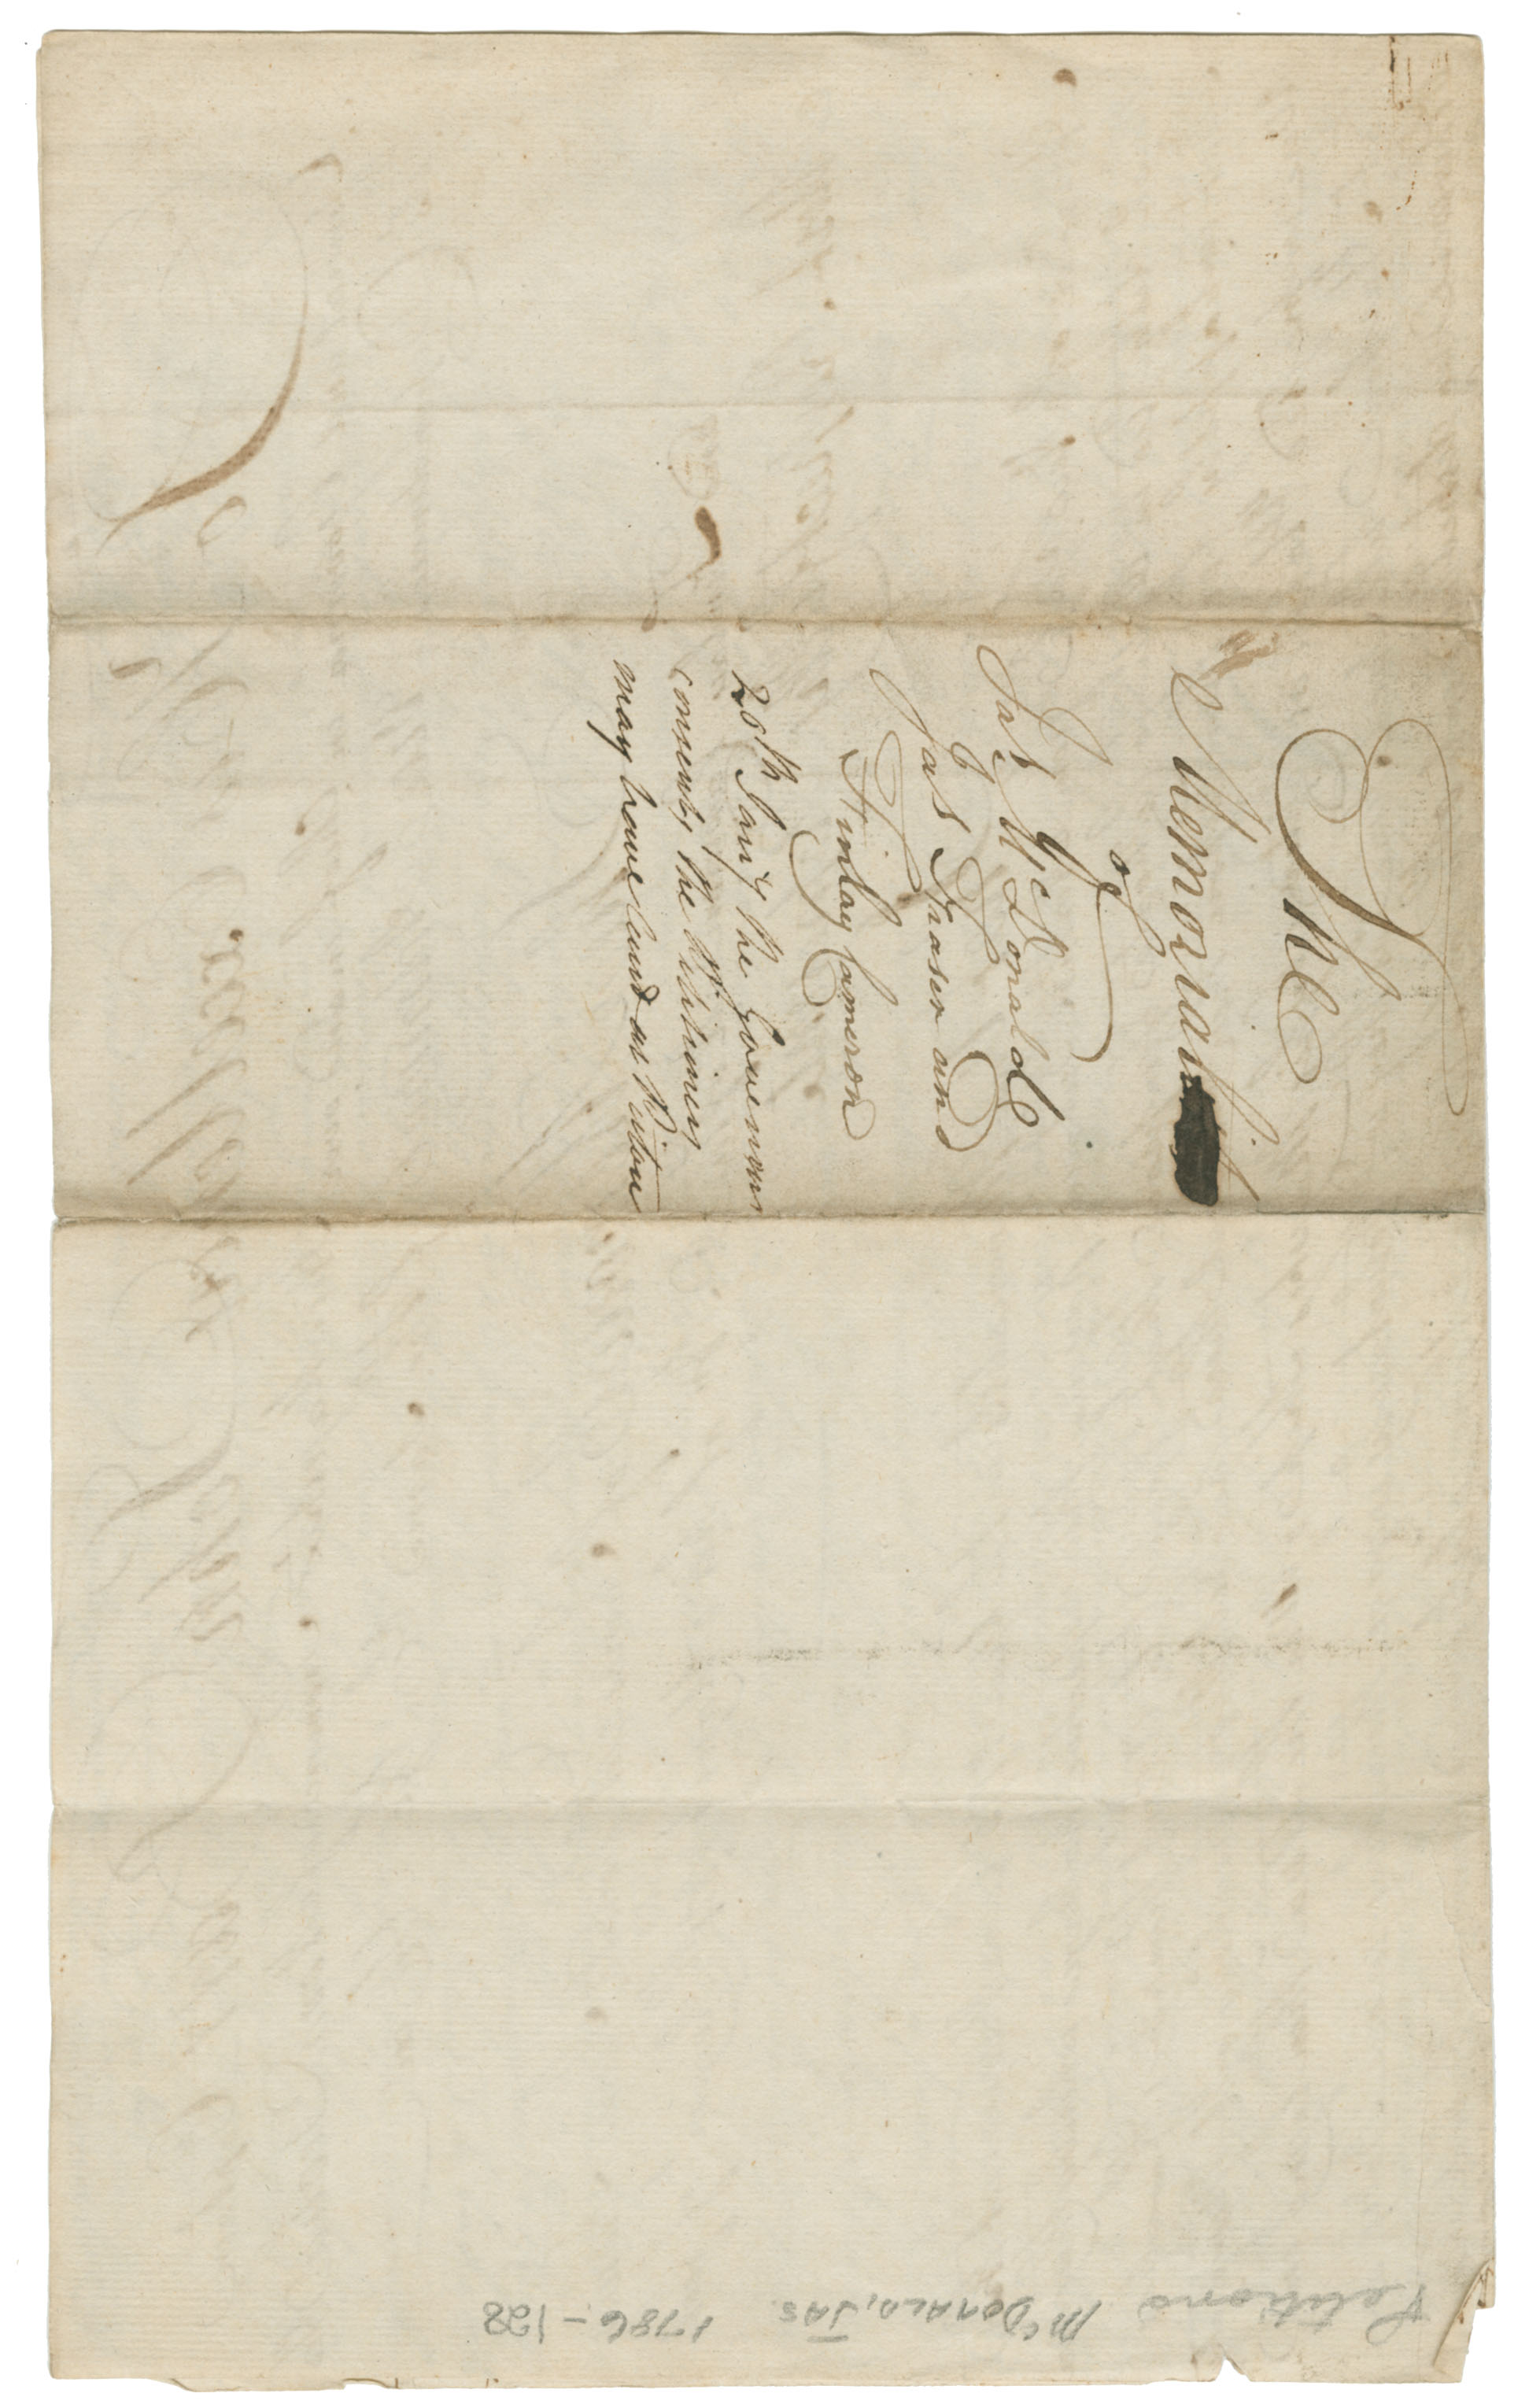 The
Memorial
of
Jas McDonald
Jas Fraser and
Finlay Cameron
28th Jany the Governor
consents the Petitioners
may have land at Pictou
Petitions McDONALD, JAS 1786-122